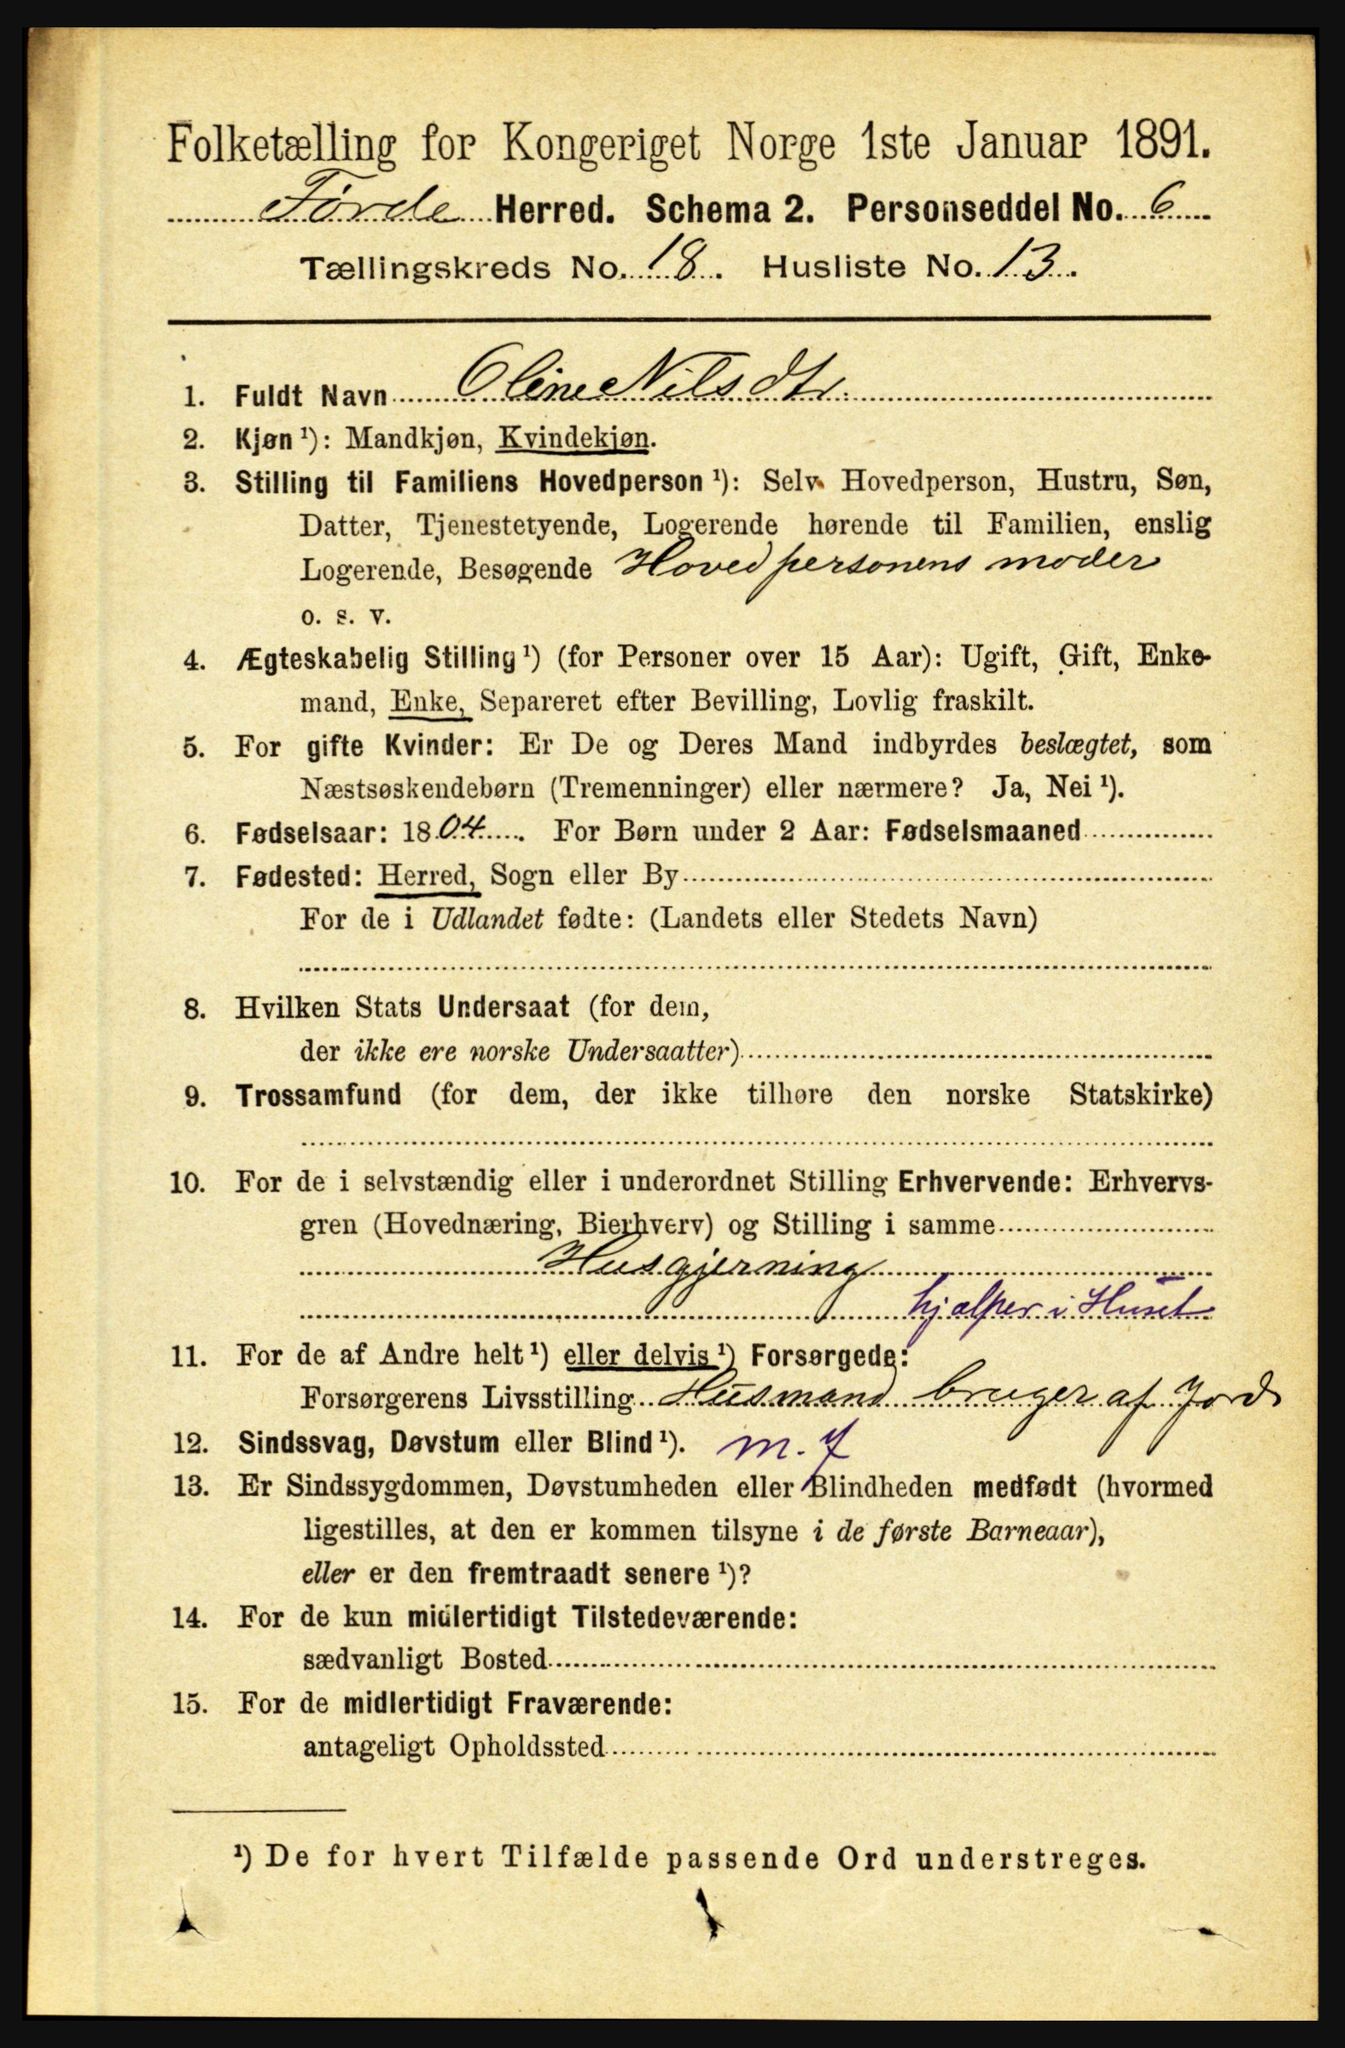 Folketælling for Kongeriget Norge 1ste Januar 1891.
Førde Herred. Schema 2. Personseddel No. 6
Tællingskreds No. 18. Husliste No. 13.
1. Fuldt Navn Oline Nilsdtr.
2. Kjøn ¹): Mandkjøn, Kvindekjøn.
3. Stilling til Familiens Hovedperson ¹): Selv Hovedperson, Hustru, Søn,
Datter, Tjenestetyende, Logerende hørende til Familien, enslig
Logerende, Besøgende Hovedpersonens moder
o. s. v.
4. Ægteskabelig Stilling ¹) (for Personer over 15 Aar): Ugift, Gift, Enke-
mand, Enke, Separeret efter Bevilling, Lovlig fraskilt.
5. For gifte Kvinder: Er De og Deres Mand indbyrdes beslægtet, som
Næstsøskendebørn (Tremenninger) eller nærmere? Ja, Nei ¹).
6. Fødselsaar: 1804. For Børn under 2 Aar: Fødselsmaaned
7. Fødested: Herred, Sogn eller By
For de i Udlandet fødte: (Landets eller Stedets Navn)
8. Hvilken Stats Undersaat (for dem,
der ikke ere norske Undersaatter)
9. Trossamfund (for dem, der ikke tilhøre den norske Statskirke)
10. For de i selvstændig eller i underordnet Stilling Erhvervende: Erhvervs-
gren (Hovednæring, Bierhverv) og Stilling i samme
Husgjerning
hjælper i Huset
11. For de af Andre helt ¹) eller delvis ¹) Forsørgede:
Forsørgerens Livsstilling Husmand bruger af Jord
12. Sindssvag, Døvstum eller Blind ¹). m. 7
13. Er Sindssygdommen, Døvstumheden eller Blindheden medfødt (hvormed
ligestilles, at den er kommen tilsyne i de første Barneaar),
eller er den fremtraadt senere ¹)?
14. For de kun midlertidigt Tilstedeværende:
sædvanligt Bosted
15. For de midlertidigt Fraværende:
antageligt Opholdssted
¹) De for hvert Tilfælde passende Ord understreges.